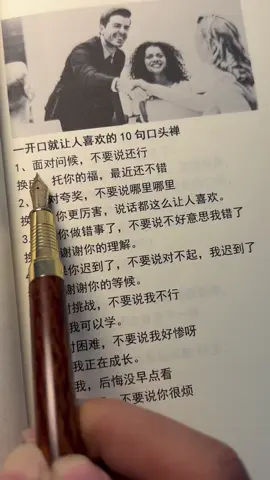 一开口就让人喜欢的10句口头禅
1、面对问候，不要说还行
换 托你的福，最近还不错
2、 对夸奖，不要说哪里哪里
换 你更厉害，说话都这么让人喜欢。
3 你做错事了，不要说不好意思我错了
换 谢谢你的理解。
你迟到了，不要说对不起，我迟到了
谢谢你的等候。
挑战，不要说我不行
我可以学。
对困难，不要说我好惨呀
我正在成长。
我，后悔没早点看
不要说你很烦